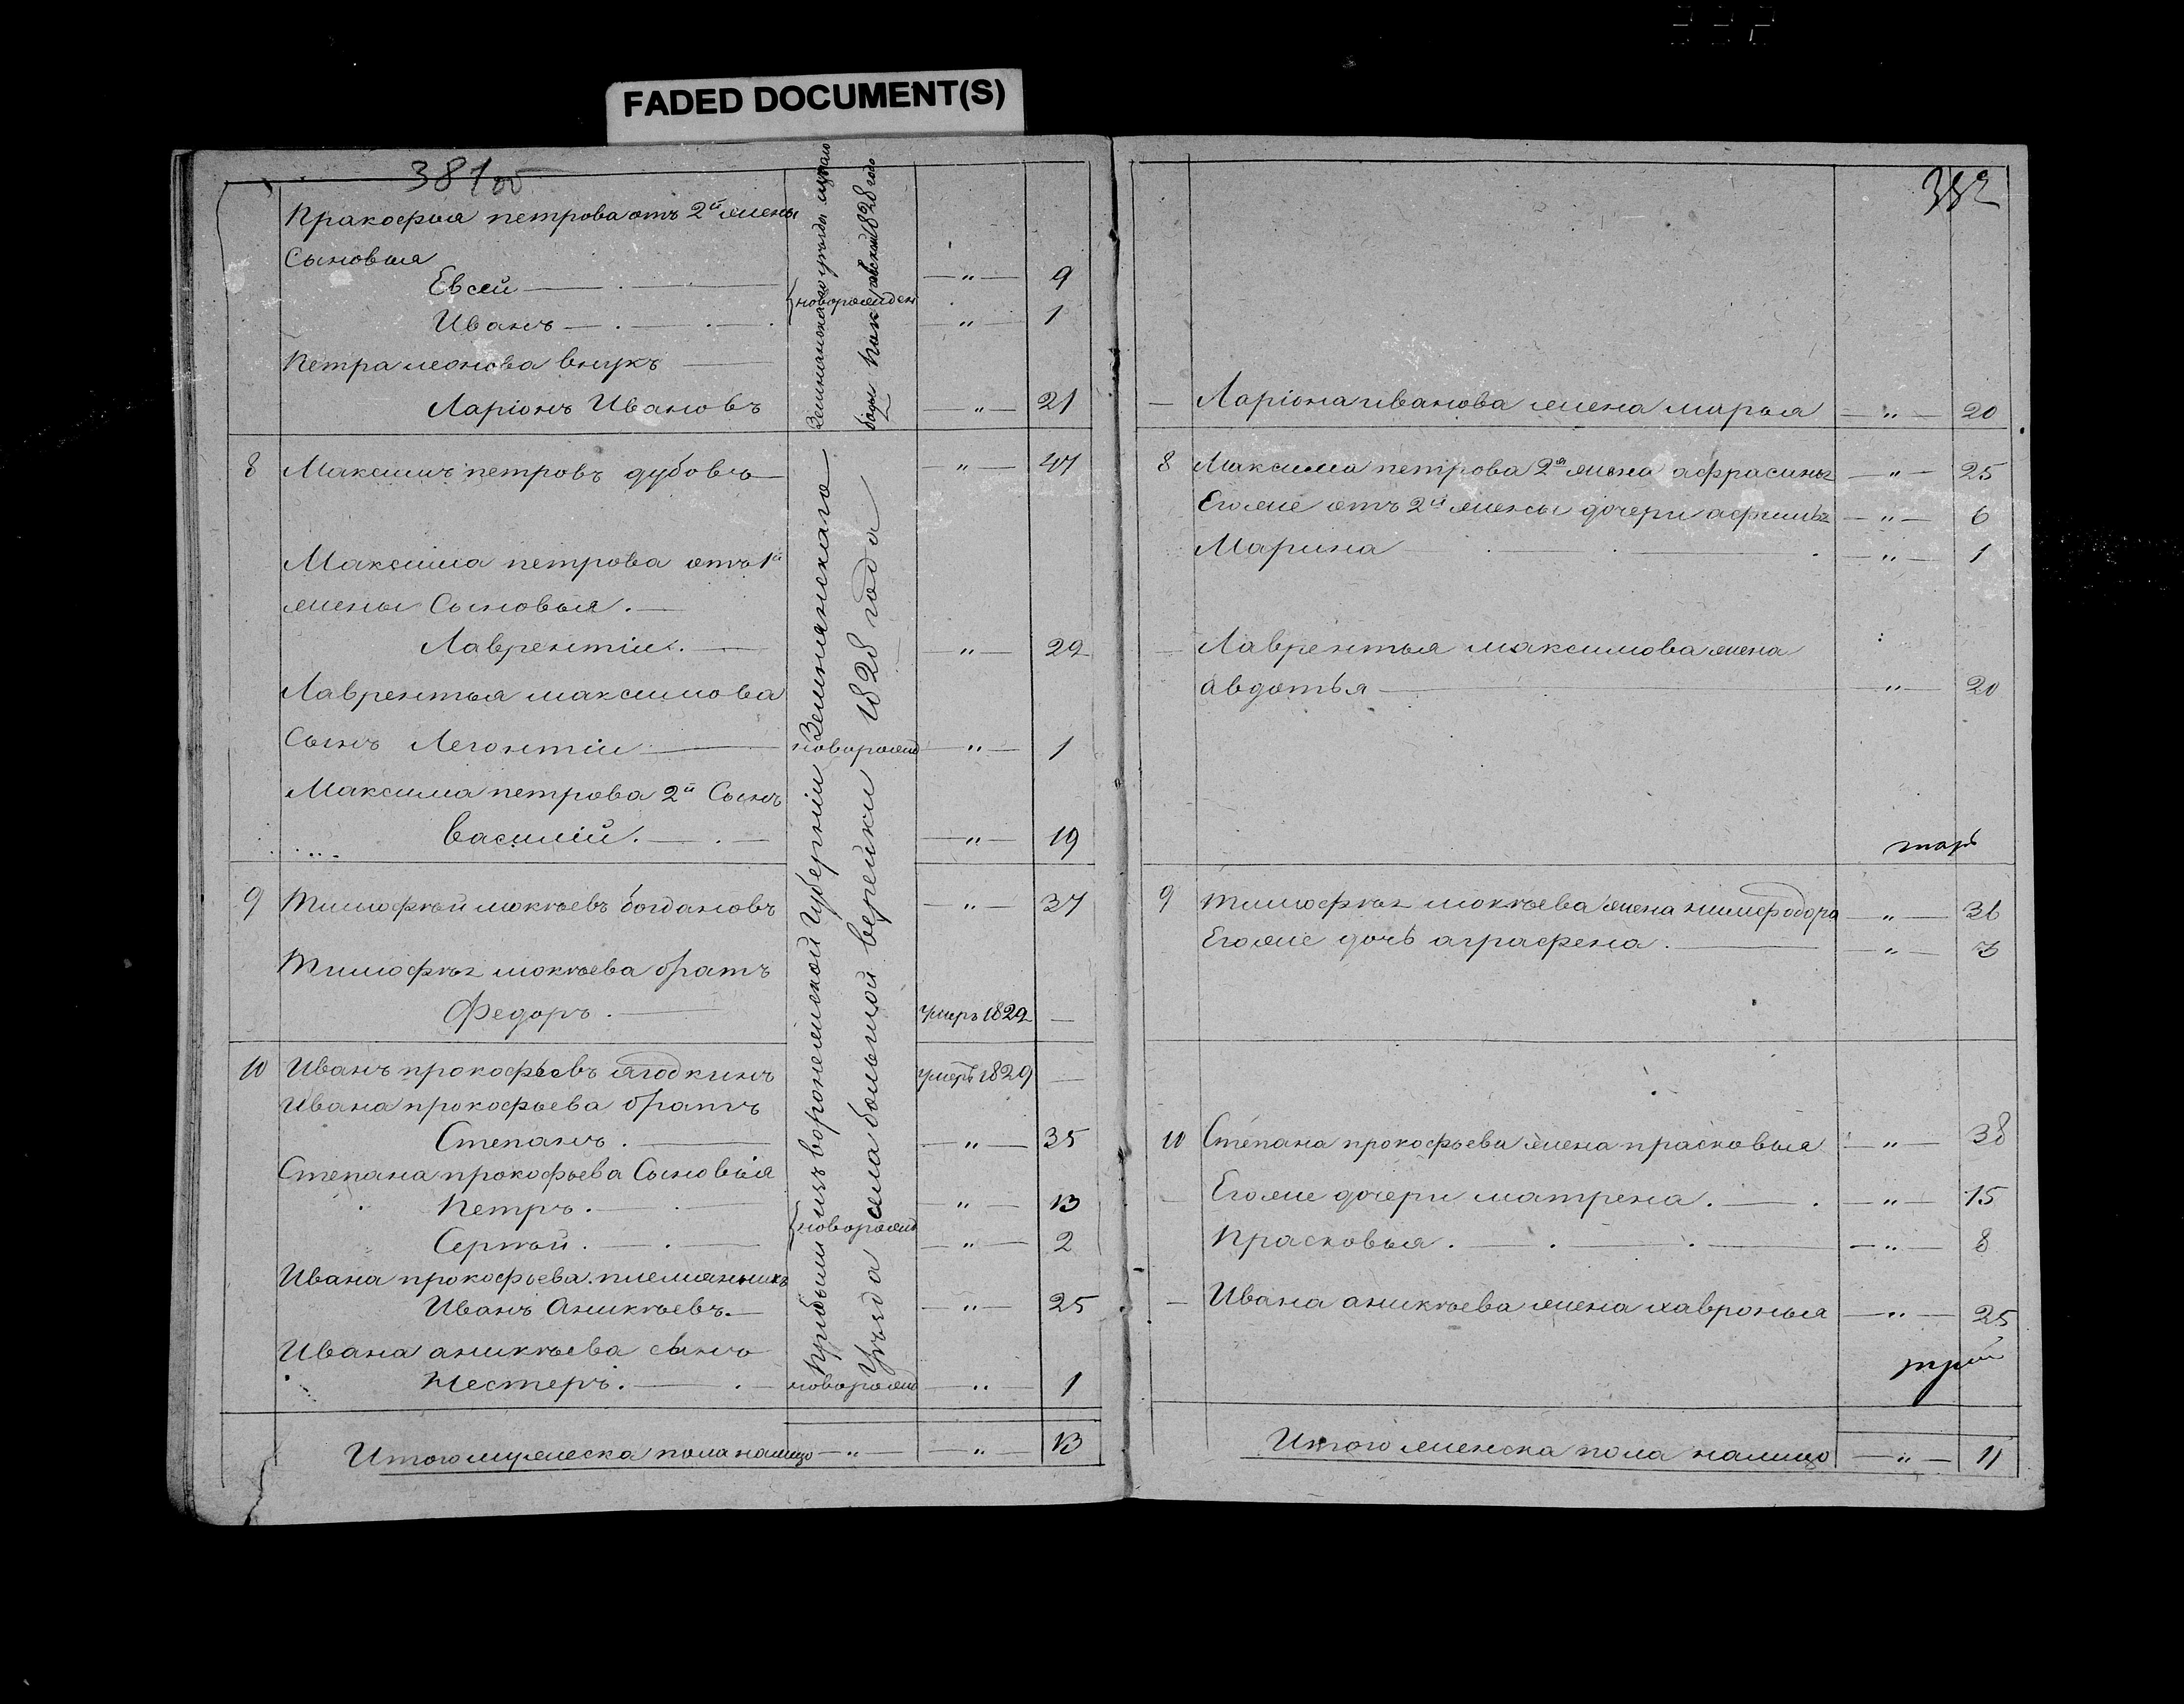 FADED DOCUMENT(S)
381
Пракофья петрова отъ 2й жены
Сыновья
Евсей — " — 9
новорожден
Иванъ — " — 1
Петра леонова внукъ
Ларіонъ Ивановъ — " — 21
8 Максимъ петровъ дубовъ — " — 47
Максима петрова отъ 1й
жены Сыновья.
Лаврентіи. — " — 29
Лаврентья максимова
Сынъ Леонтіи новорожд — " — 1
Максима петрова 2й Сынъ
василий. — " — 19
9 Тимофѣй мокѣевъ богдановъ — " — 37
Тимофѣя мокѣева братъ
Федоръ. умеръ 1829 —
10 Иванъ прокофьевъ ягодкинъ умеръ 1829 —
Ивана прокофьева братъ
Степанъ. — " — 35
Степана прокофьева Сыновья
Петръ. — " — 13
новорожд
Сергѣй. — " — 2
Ивана прокофьева племянникъ
Иванъ Аникѣевъ. — " — 25
Ивана аникѣева сынъ
Нестеръ. новорожд — " — 1
Итого мужеска пола налицо — " — — " — 13
прибыли изъ воронежской Губерніи Землянскаго
Уѣзда села большой верейки 1828 года
382
— Ларіона иванова жена марья — " — 20
8 Максима петрова 2я жена афрасинья — " — 25
Егоже отъ 2й жены дочери афимья — " — 6
Марина — " — 1
— Лаврентья максимова жена
авдотья — " — 20
9 Тимофѣя мокѣева жена нимфодора — " — 36
Егоже дочь аграфена. — "
10 Степана прокофьева жена прасковья — " — 38
— Егоже дочери матрена. — " — 15
Прасковья. — " — 8
— Ивана аникѣева жена хавронья — " — 25
Итого женска пола налицо — " — 11